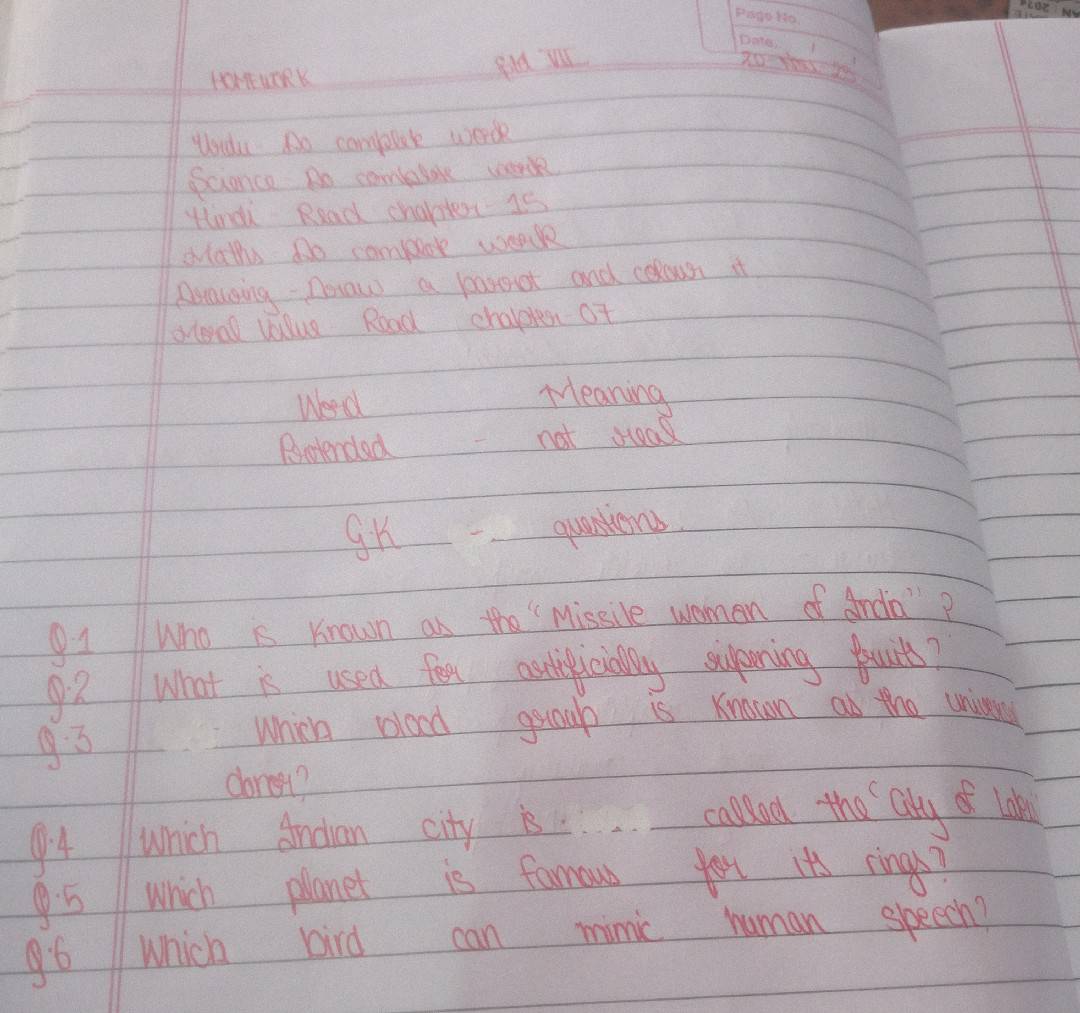 Page No.
Date.
HOMEWORK VII
Urdu Do complete work
Science Do complete work
Hindi Read chapter 15
Maths Do complete work
Drawing - Draw a parrot and colour it
Moral Value Read chapter 07
Word Meaning
Pretended - not real
G.K - questions
Q.1 Who is known as the "Missile woman of India"?
Q.2 What is used for artificially ripening fruits?
Q.3 Which blood group is known as the
donor?
Q.4 Which Indian city is called the "City of
Q.5 Which planet is famous for its rings?
Q.6 Which bird can mimic human speech?